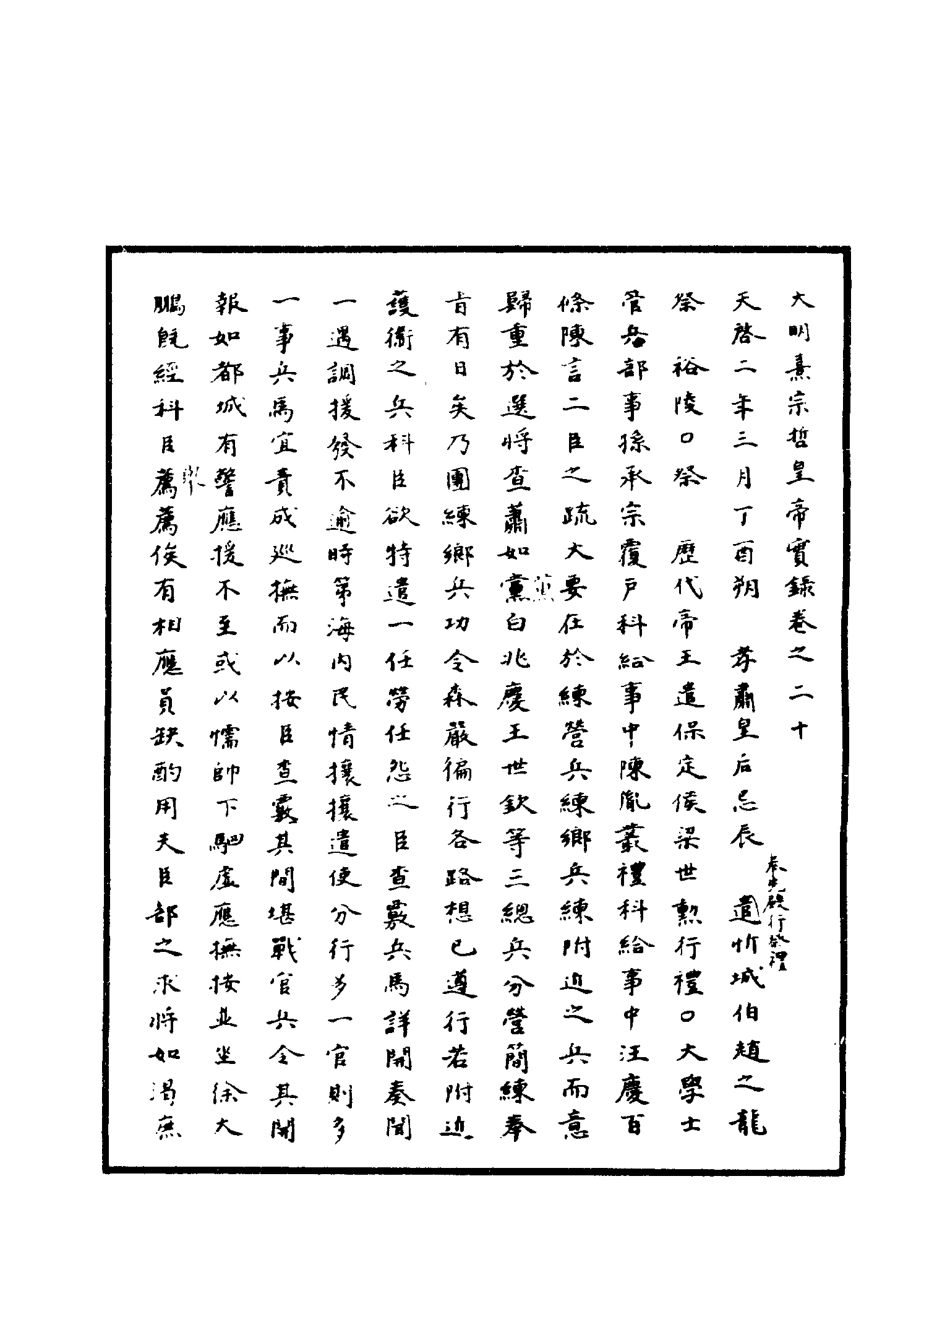 大明熹宗哲皇帝實錄卷之二十
天啓二年三月丁酉朔　孝肅皇后忌辰　遣忻城伯趙之龍
奉先殿行祭禮
祭　裕陵○祭　歷代帝王遣保定侯梁世勲行禮○大學士
管兵部事孫承宗覆戶科給事中陳胤叢禮科給事中汪慶百
條陳言二臣之疏大要在於練營兵練鄉兵練附近之兵而意
歸重於選將查蕭如薰白兆慶王世欽等三總兵分營簡練奉
旨有日矣乃團練鄉兵功令森嚴徧行各路想已遵行若附近
護衞之兵科臣欲特遣一任勞任怨之臣查覈兵馬詳開奏聞
一遇調援發不逾時第海內民情攘攘遣使分行多一官則多
一事兵馬宜責成巡撫而以按臣查覈其間堪戰官兵令其開
報如都城有警應援不至或以懦帥下駟虛應撫按並坐徐大
鵬旣經科臣薦薦俟有相應員缺酌用夫臣部之求將如渴無
舉